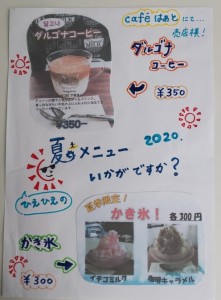 달고나
ダルゴナコーヒー
¥350
cafe はあと にて…
売店様!
ダルゴナ
コーヒー
¥350
2020.
夏のメニュー
いかがですか?
ひえひえの
かき氷
¥300
夏季限定!
かき氷!
各300円
イチゴミルク
キャラメル